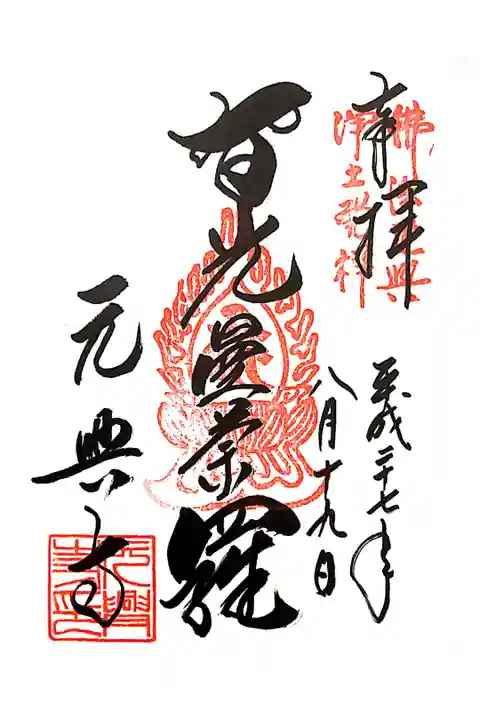 奉拝
佛法興
浄土発祥
平成二十七年
八月十九日
智光曼荼羅
元興寺